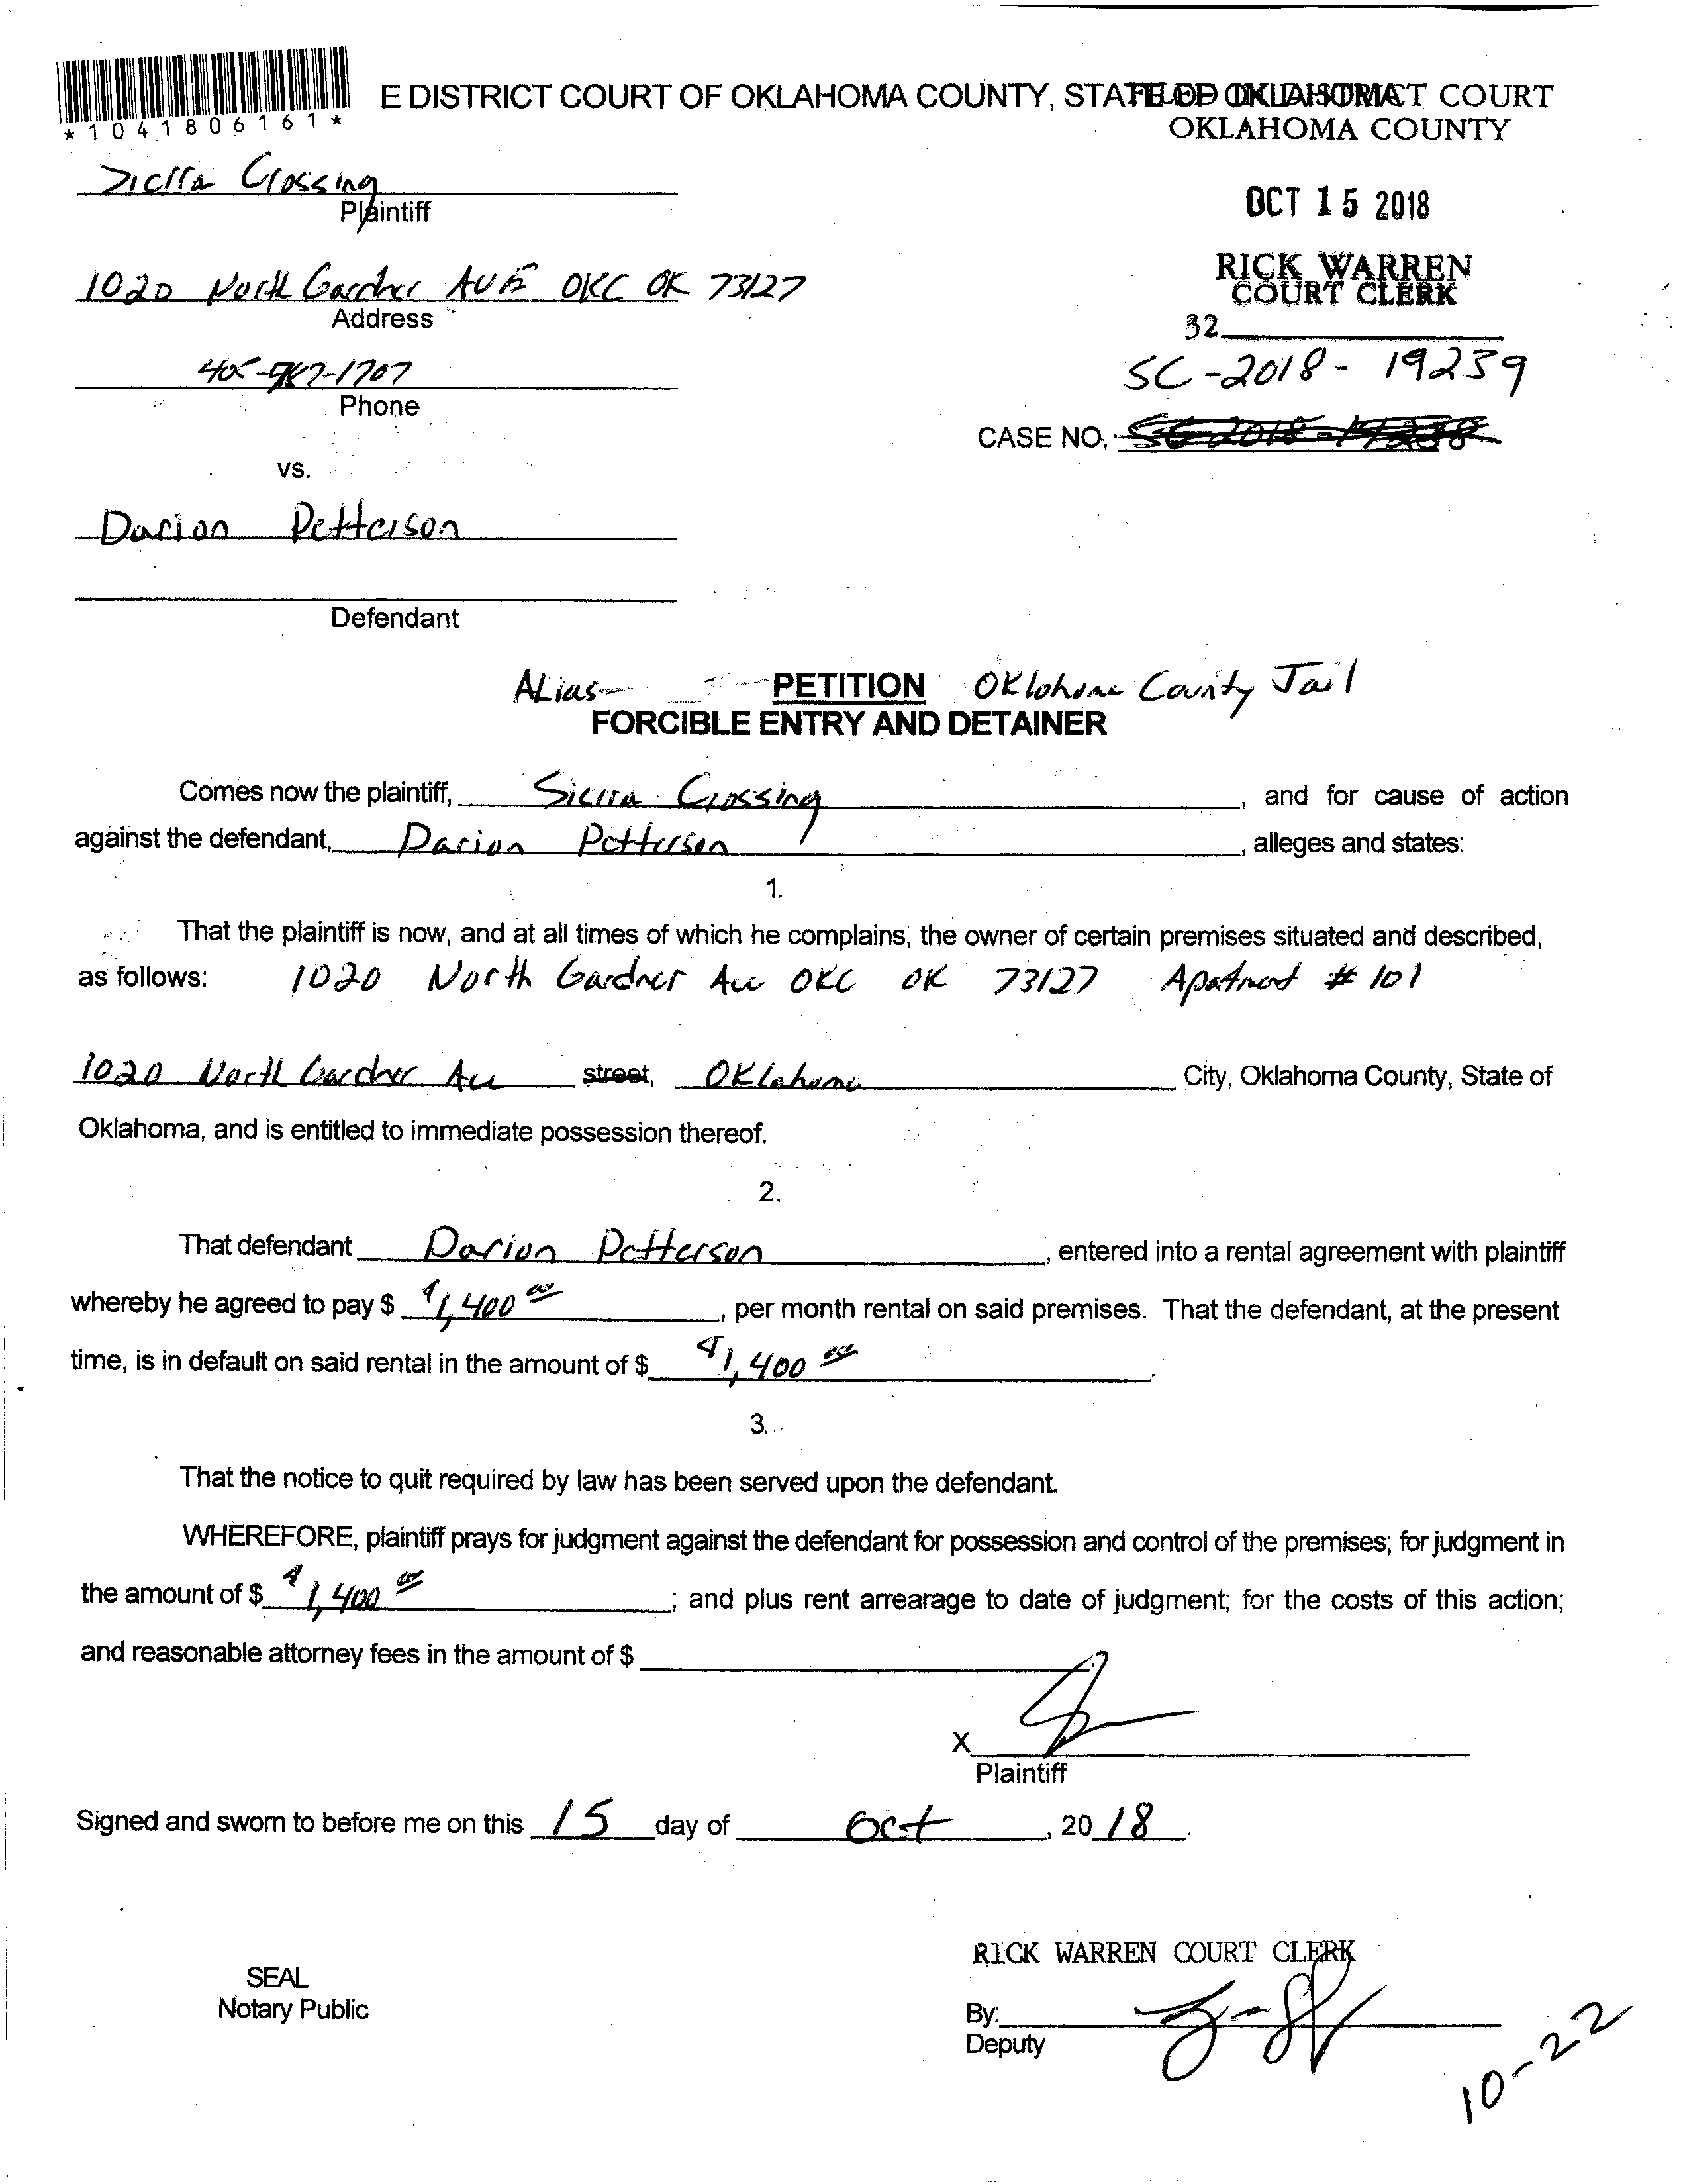 *1041806161*
E DISTRICT COURT OF OKLAHOMA COUNTY, STATE OF OKLAHOMA
FILED IN DISTRICT COURT
OKLAHOMA COUNTY
Sierra Crossing
Plaintiff
OCT 15 2018
RICK WARREN
COURT CLERK
32
1020 North Gardner AVE OKC OK 73127
Address
Phone
SC-2018-19239
CASE NO.
vs.
Darion Petterson
Defendant
ALias PETITION Oklahoma County Jail
FORCIBLE ENTRY AND DETAINER
Comes now the plaintiff, Sierra Crossing, and for cause of action
against the defendant, Darion Petterson, alleges and states:
1.
That the plaintiff is now, and at all times of which he complains, the owner of certain premises situated and described,
as follows: 1020 North Gardner Ave OKC OK 73127 Apatment # 101
1020 North Gardner Ave street, OKlahoma City, Oklahoma County, State of
Oklahoma, and is entitled to immediate possession thereof.
2.
That defendant Darion Patterson, entered into a rental agreement with plaintiff
whereby he agreed to pay $ $1,400 00, per month rental on said premises. That the defendant, at the present
time, is in default on said rental in the amount of $ $1,400 00.
3.
That the notice to quit required by law has been served upon the defendant.
WHEREFORE, plaintiff prays for judgment against the defendant for possession and control of the premises; for judgment in
the amount of $ $1,400 00; and plus rent arrearage to date of judgment; for the costs of this action;
and reasonable attorney fees in the amount of $
X
Plaintiff
Signed and sworn to before me on this 15 day of Oct, 2018.
RICK WARREN COURT CLERK
SEAL
Notary Public
By:
Deputy
10-22